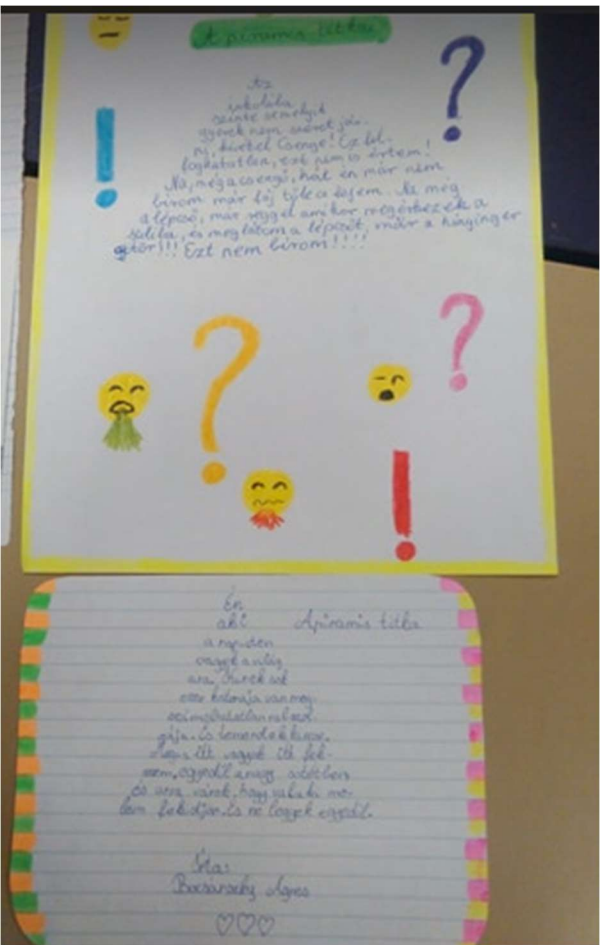 A piramis titka
Az
iskolába
szinte semelyik
gyerek nem szeret jár-
ni, kivétel Csenge! Ez fel-
foghatatlan, ezt nem is értem!
Na, még a csengő, hát én már nem
bírom már fáj tőle a fejem. Na meg
a lépcső, már reggel amikor megérkezek a
suliba, és meglátom a lépcsőt, már a hányinger
gtör!!! Ezt nem bírom!!!!
Én
aki A piramis titka
a
vagyok a világ
ura,
ezer katonája van meg-
számlálhatatlan rabszol-
gája. És temérdek kincse.
Mégis itt vagyok itt fek-
szem, egyedül a nagy sötétben
és arra várok, hogy valaki me-
lém feküdjön. És ne legyek egyedül.
Írta:
Ágnes